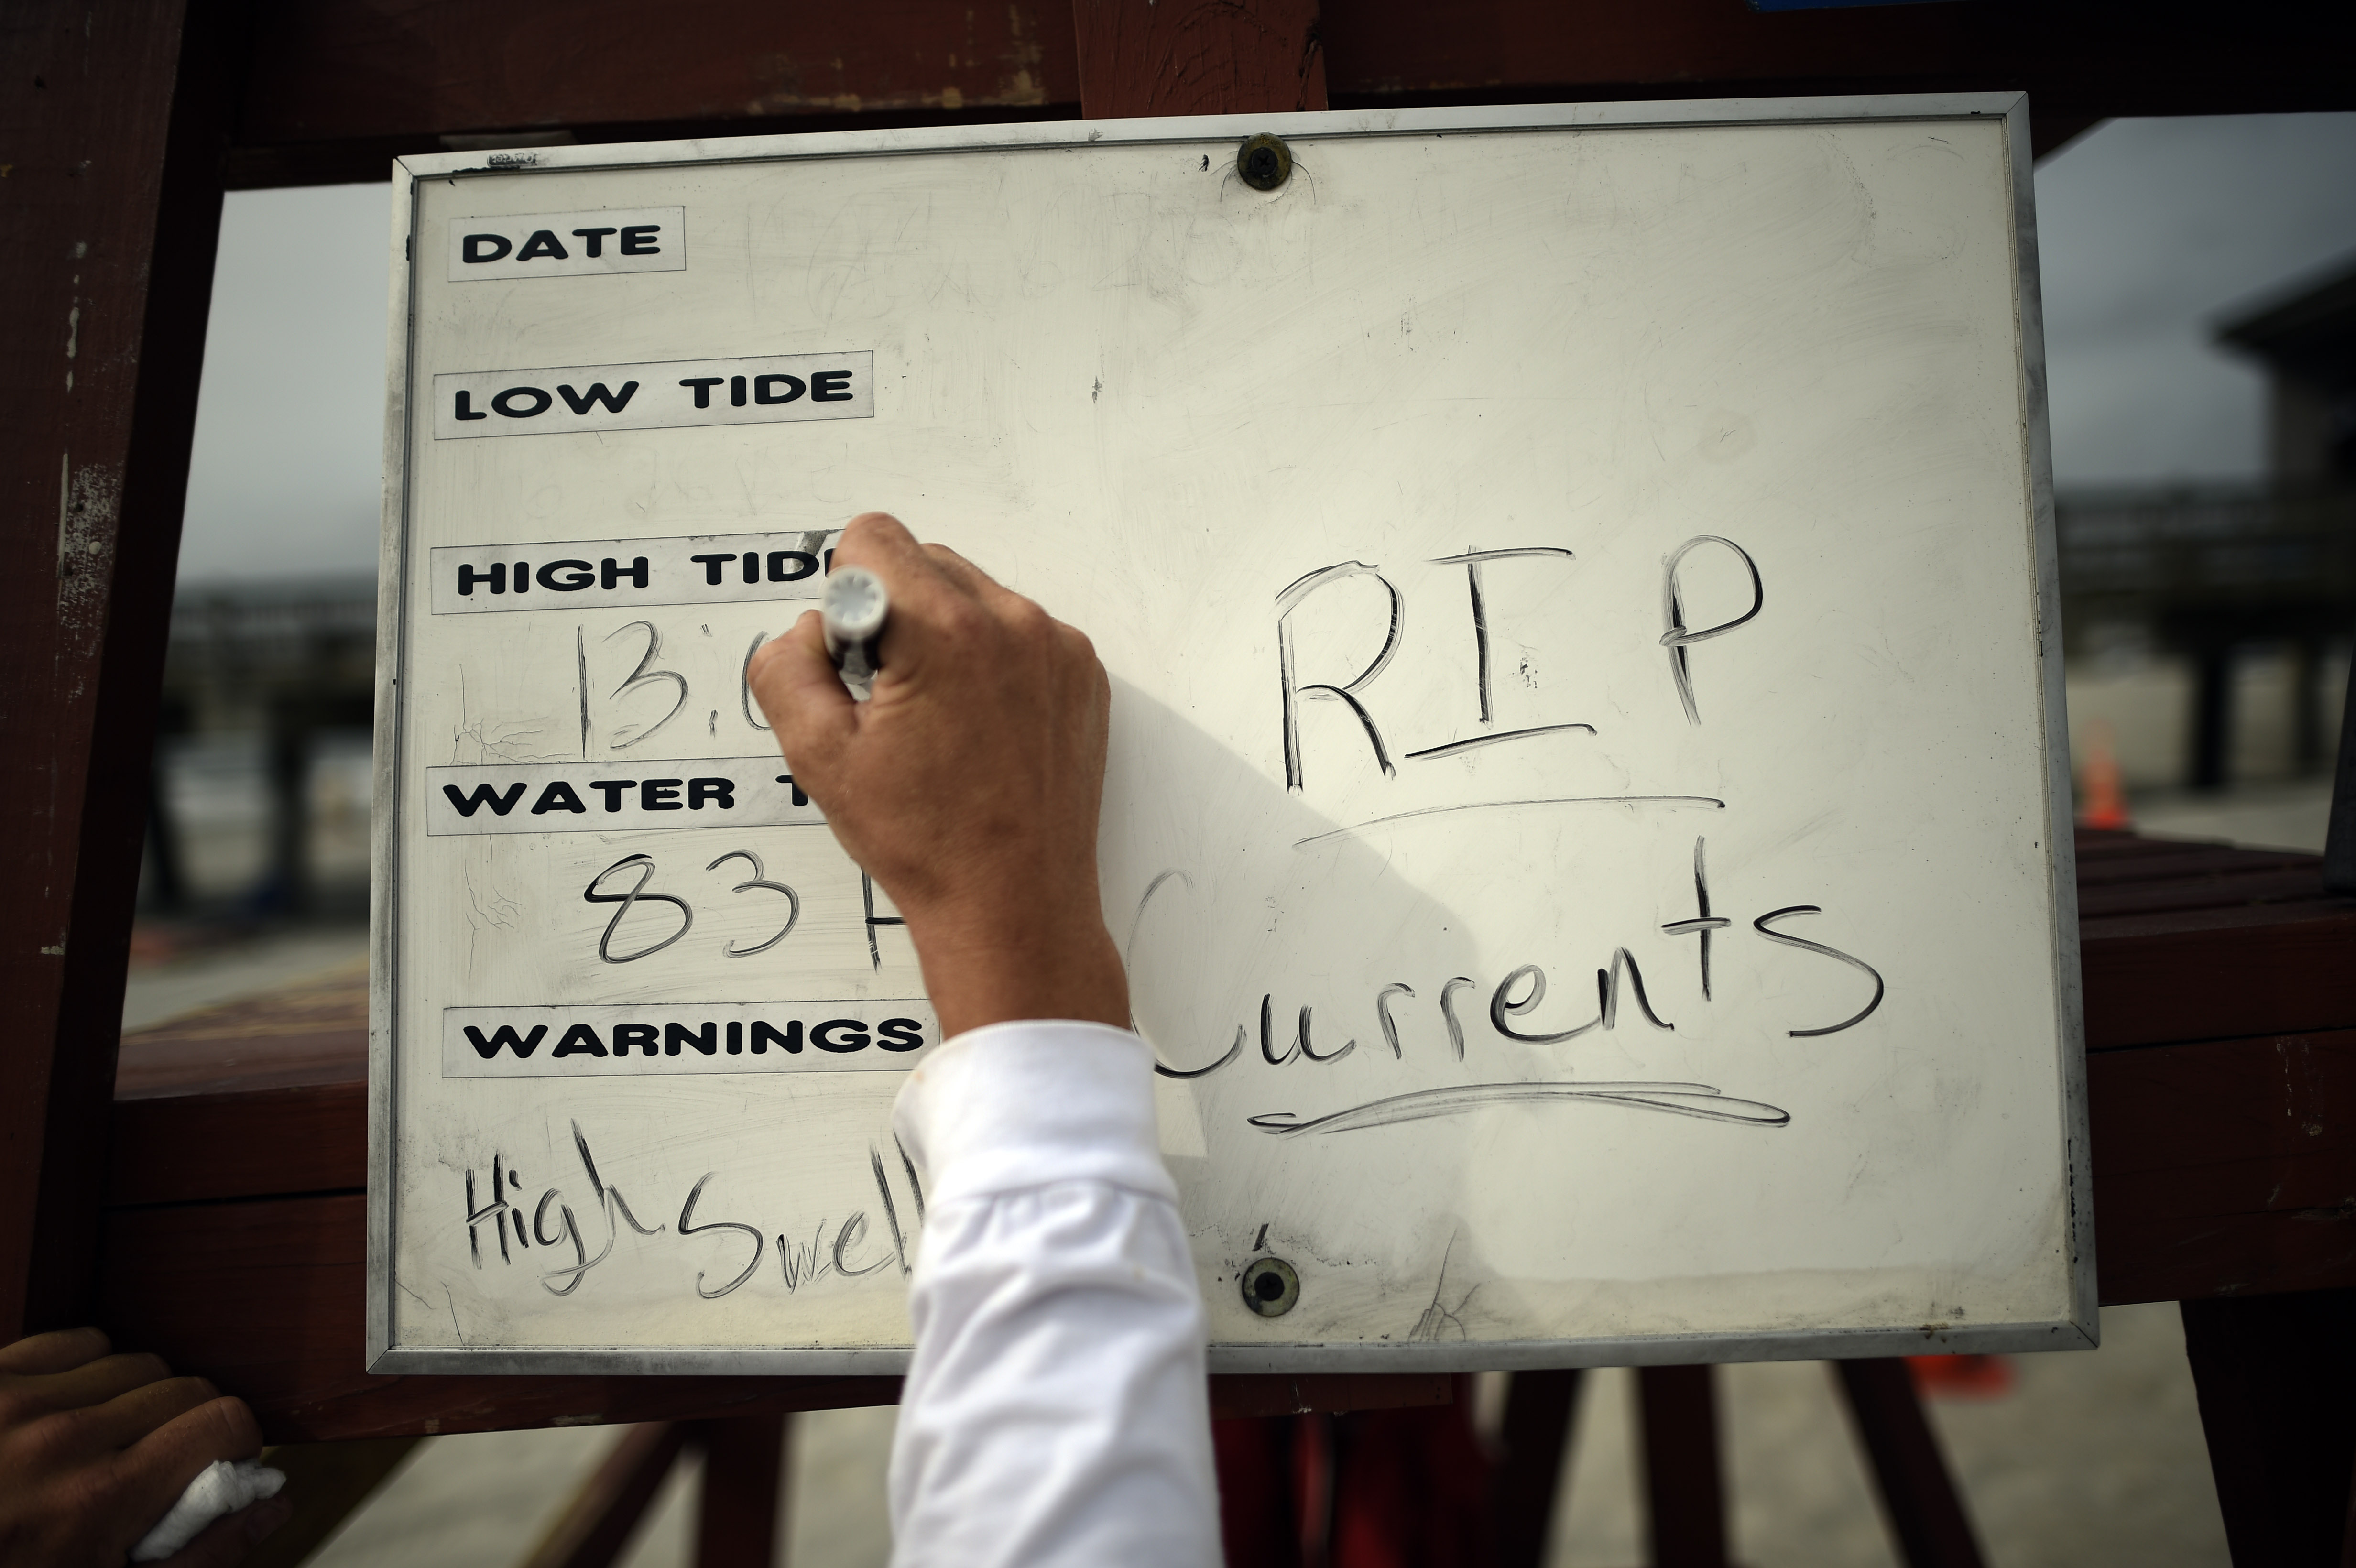 DATE
LOW TIDE
HIGH TID
13:
WATER
83
WARNINGS
High Swell
RIP
Currents